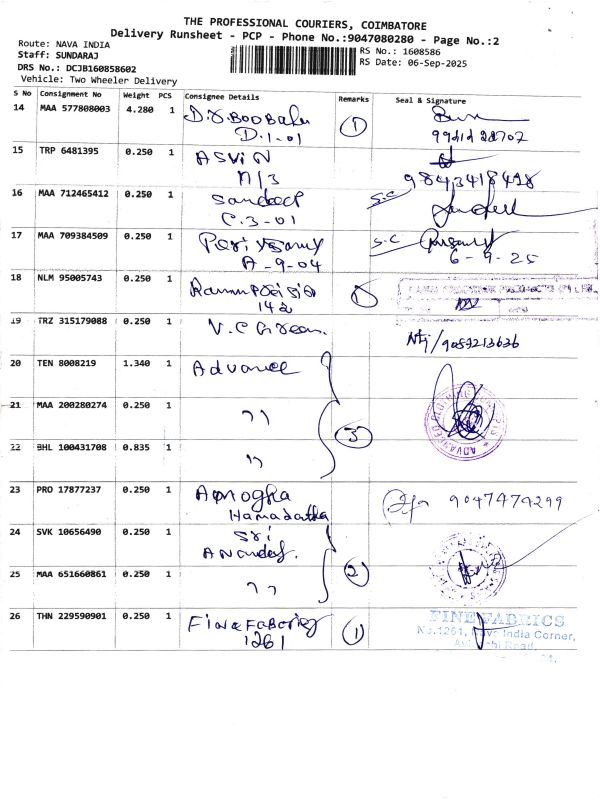 THE PROFESSIONAL COURIERS, COIMBATORE
Delivery Runsheet - PCP - Phone No.:9047080280 - Page No.:2
Route: NAVA INDIA
RS No.: 1608586
Staff: SUNDARAJ
RS Date: 06-Sep-2025
DRS No.: DCJB160858602
Vehicle: Two Wheeler Delivery
S No Consignment No Weight PCS Consignee Details Remarks Seal & Signature
14 MAA 577808003 4.280 1 D.S.BOOBalu 1
D.1-01
15 TRP 6481395 0.250 1 ASViN
n/3 9843418498
16 MAA 712465412 0.250 1 Sandeep S.C
C.3-01
17 MAA 709384509 0.250 1 S.C
A-9-04 6-9-25
18 NLM 95005743 0.250 1 1
142
19 TRZ 315179088 0.250 1 V.C Green
20 TEN 8008219 1.340 1 Advance
21 MAA 200280274 0.250 1 " 3
22 BHL 100431708 0.835 1 "
23 PRO 17877237 0.250 1 Amogha 9047479299
24 SVK 10656490 0.250 1 Sri
Anandas.
25 MAA 651660861 0.250 1 " 2
26 THN 229590901 0.250 1 Fine Fabrics 1 FINE FABRICS
1261 No.1261, Nava India Corner,
Road,